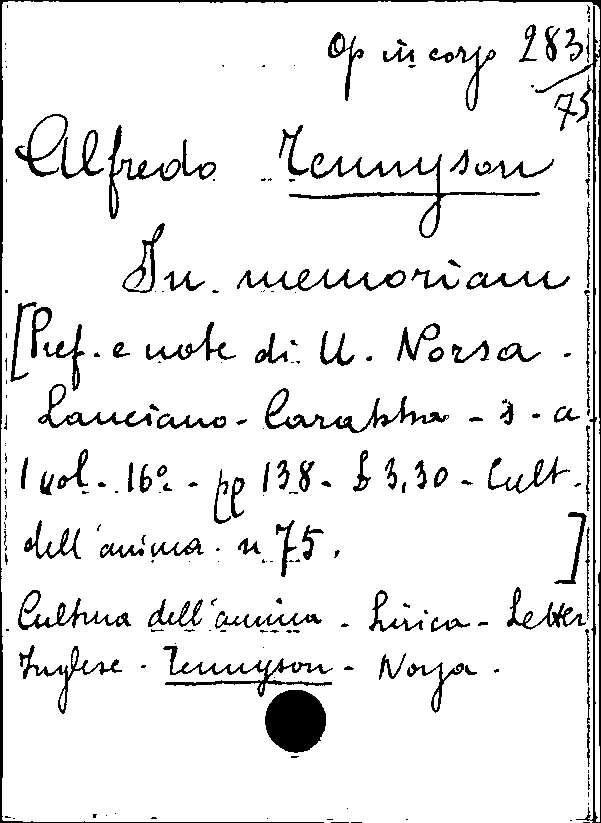 Op in corso 283/75
Alfredo Tennyson
In memoriam
[Pref. e note di U. Norsa.
Lanciano - Carabba - s. a.
1 vol. 16º - pp 138 - £ 3,30 - Cult.
dell'anima. n 75. ]
Cultura dell'anima - Lirica - Letter.
Inglese - Tennyson - Norsa.